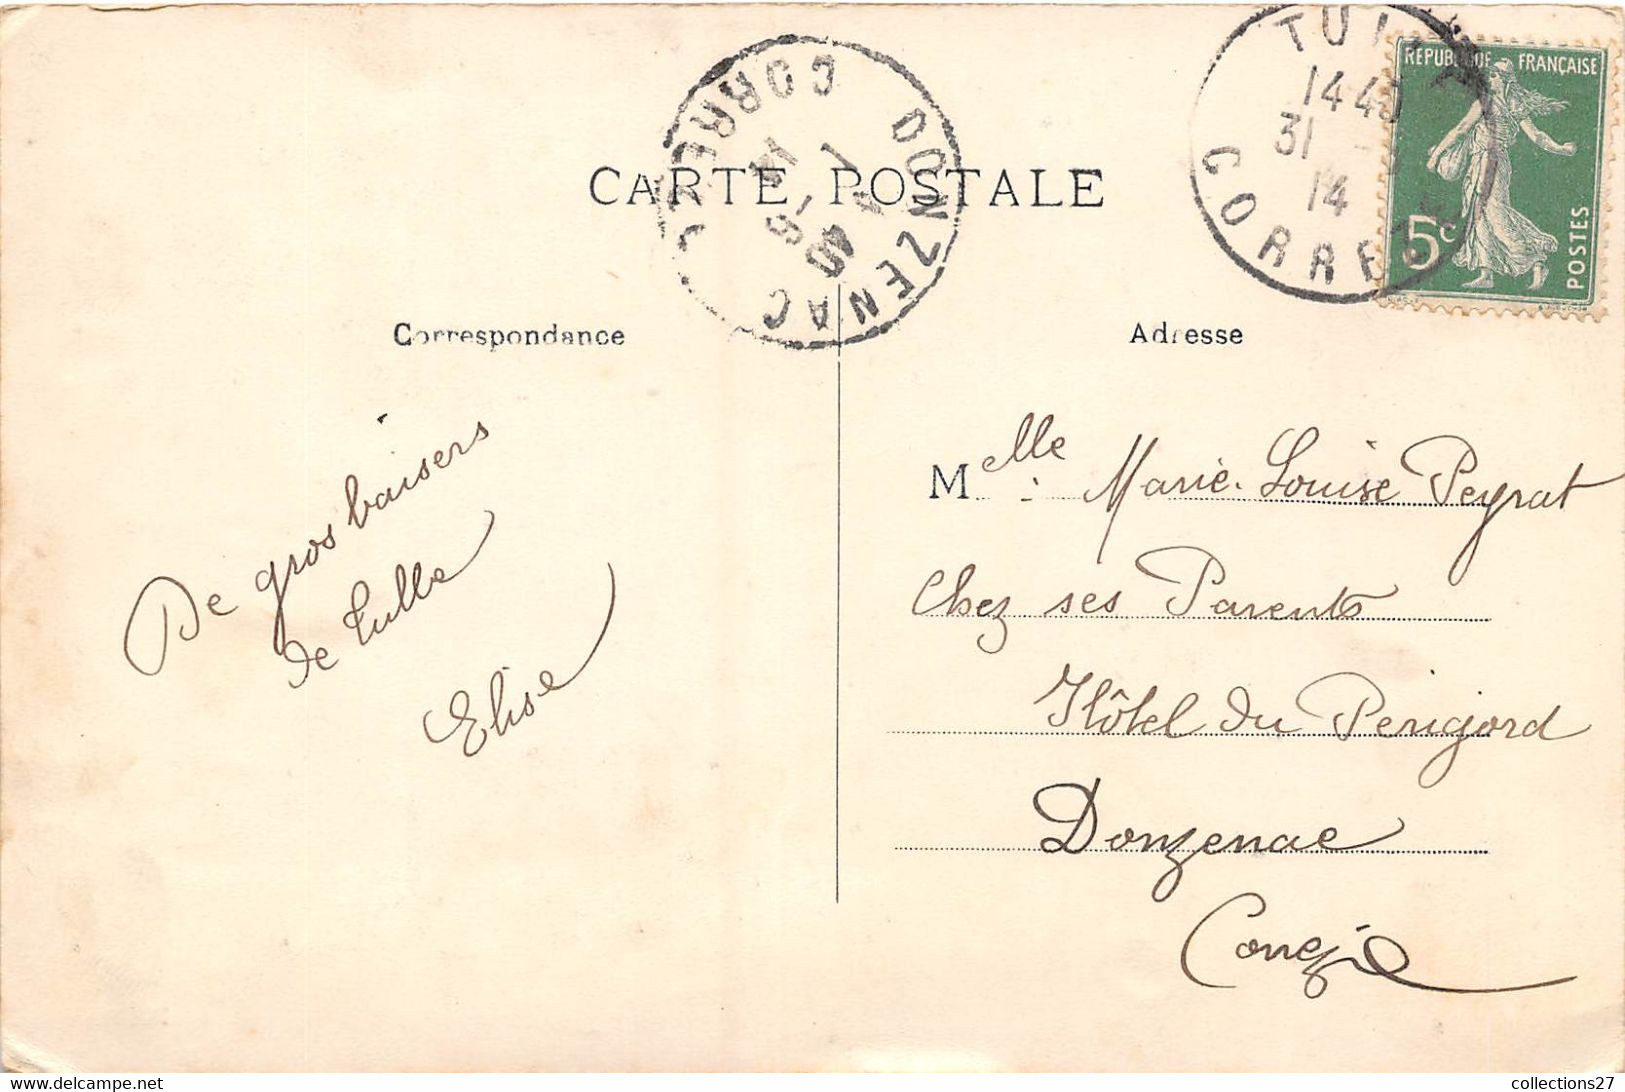 CARTE POSTALE
DONZENAC
CORREZE
TULLE
14 40
31
14
CORREZE
REPUBLIQUE FRANÇAISE
5c
POSTES
Correspondance
Adresse
De gros baisers
de Tulle
Elise
Melle Marie-Louise Peyrat
Chez ses Parents
Hôtel du Périgord
Donzenac
Corrèze
collections27